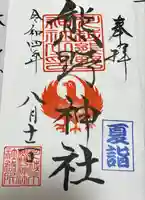 奉拝
熊野神社
令和四年
八月十
夏詣